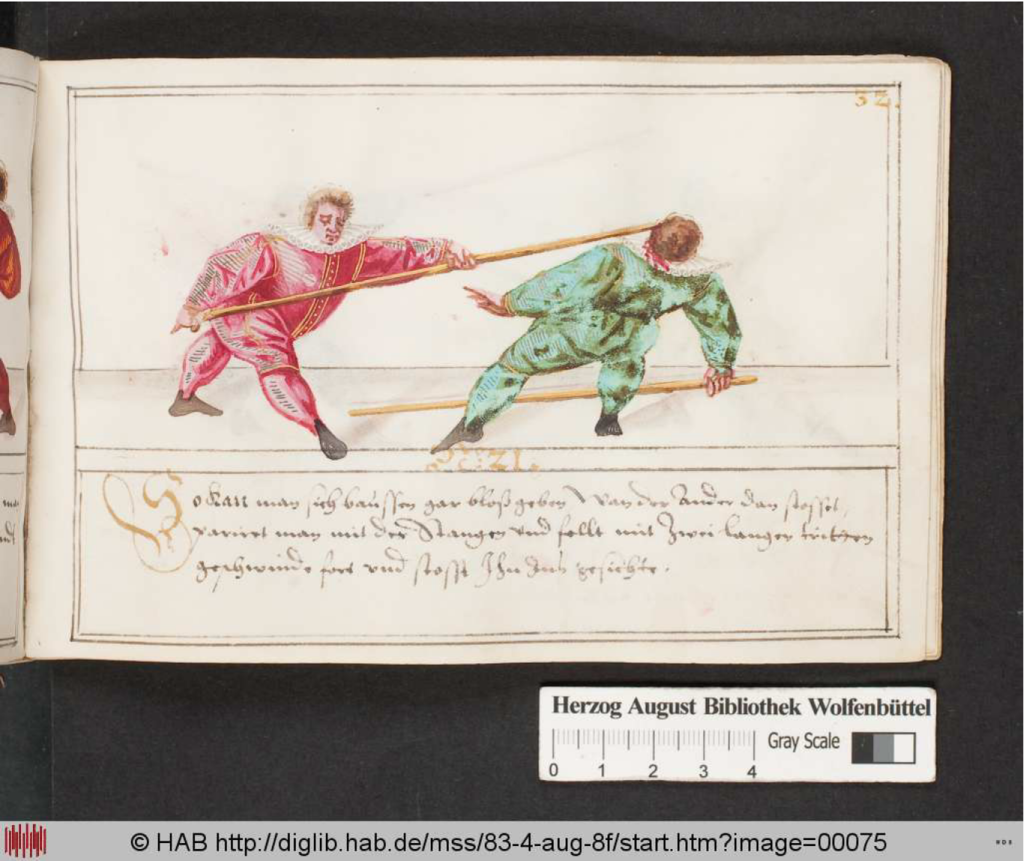 32.
21.
So kan man sich daussen gar bloß geben, Wan der Ander dan stosset,
pariret man mit der Stangen und fellt mit Zwei langen tritten
geschwinde fort und stosst Ihn ins gesichte.
Herzog August Bibliothek Wolfenbüttel
Gray Scale
0 1 2 3 4
© HAB http://diglib.hab.de/mss/83-4-aug-8f/start.htm?image=00075